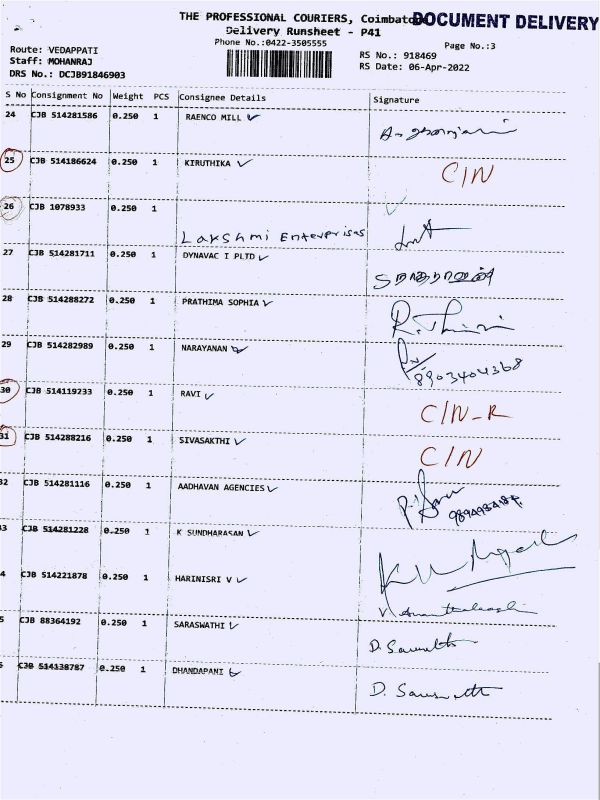 THE PROFESSIONAL COURIERS, Coimbato
DOCUMENT DELIVERY
Delivery Runsheet - P41
Phone No.:0422-3505555
Page No.:3
Route: VEDAPPATI
RS No.: 918469
Staff: MOHANRAJ
RS Date: 06-Apr-2022
DRS No.: DCJB91846903
S No Consignment No Weight PCS Consignee Details Signature
24 CJB 514281586 0.250 1 RAENCO MILL
25 CJB 514186624 0.250 1 KIRUTHIKA C/N
26 CJB 1078933 0.250 1
Lakshmi Enterprises
27 CJB 514281711 0.250 1 DYNAVAC I PLTD
28 CJB 514288272 0.250 1 PRATHIMA SOPHIA
29 CJB 514282989 0.250 1 NARAYANAN
8903404368
30 CJB 514119233 0.250 1 RAVI C/N-R
31 CJB 514288216 0.250 1 SIVASAKTHI C/N
32 CJB 514281116 0.250 1 AADHAVAN AGENCIES
3 CJB 514281228 0.250 1 K SUNDHARASAN
4 CJB 514221878 0.250 1 HARINISRI V
5 CJB 88364192 0.250 1 SARASWATHI
CJB 514138787 0.250 1 DHANDAPANI